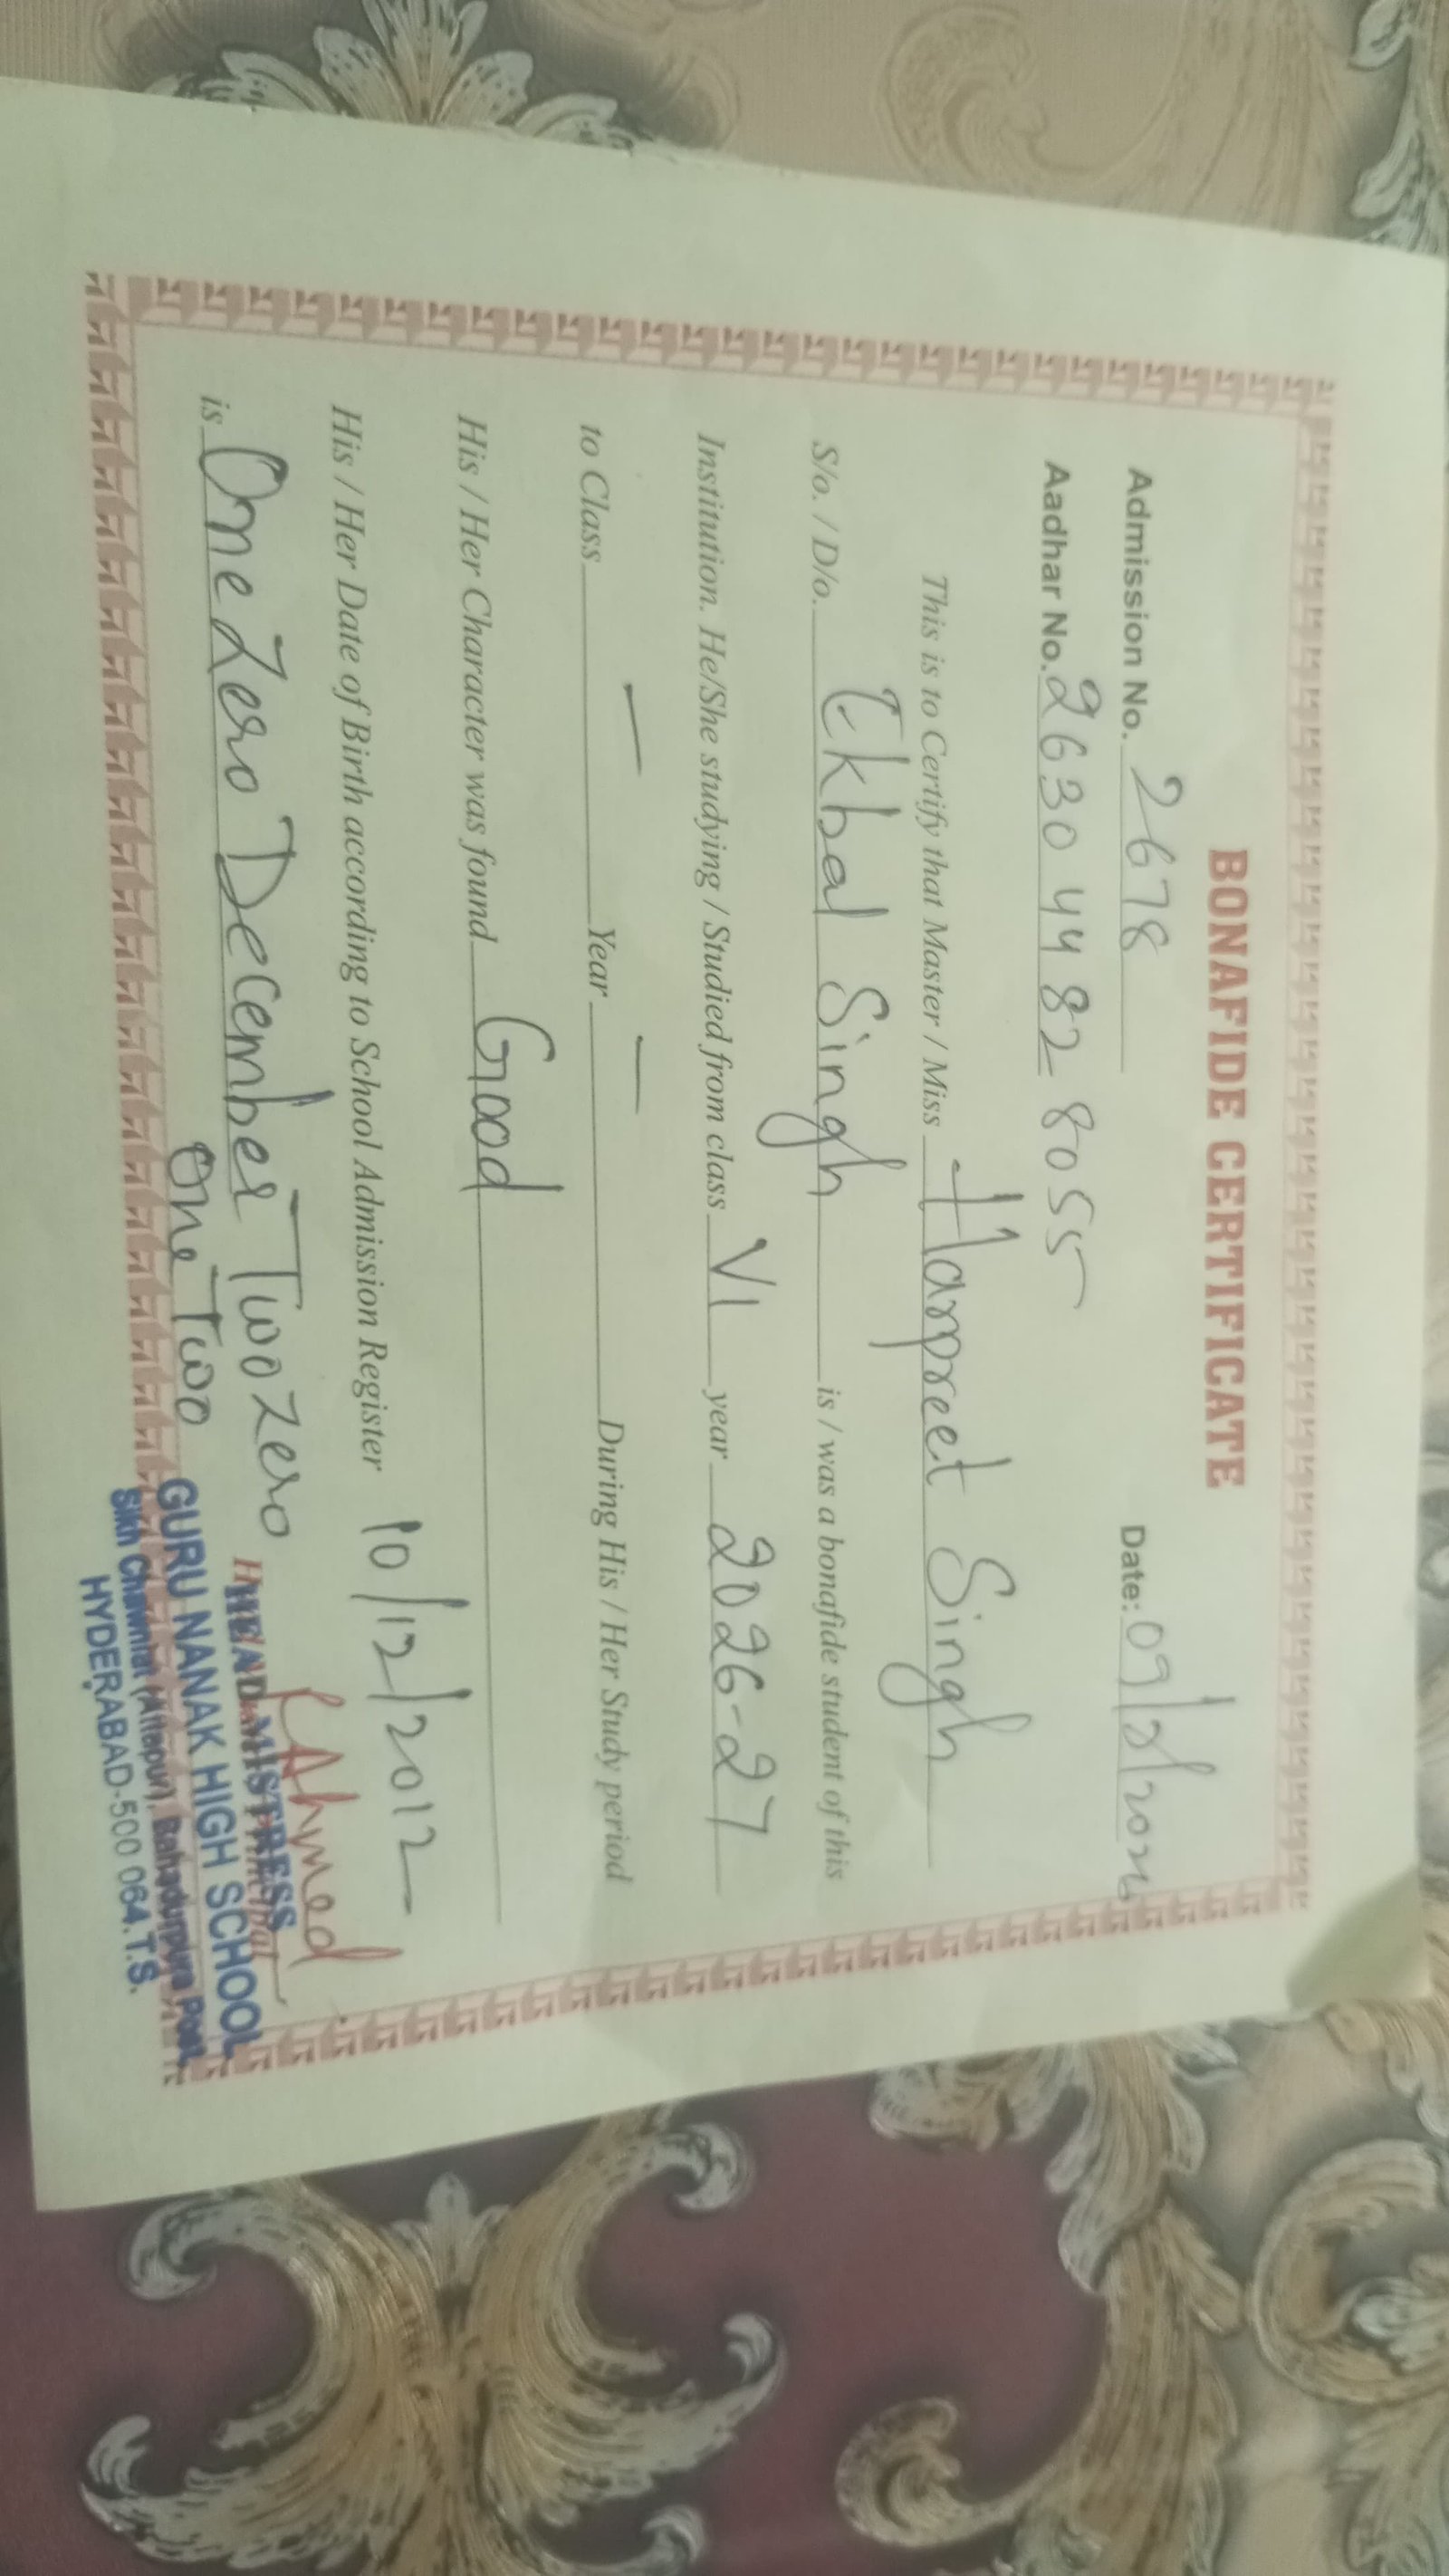 BONAFIDE CERTIFICATE
Admission No. 2678 Date: 09/
Aadhar No. 2630 4482 8055
This is to Certify that Master / Miss Harpreet Singh
S/o. / D/o. Ekbal Singh is / was a bonafide student of this
Institution. He/She studying / Studied from class VI year 2026-27
to Class — Year — During His / Her Study period
His / Her Character was found Good
His / Her Date of Birth according to School Admission Register 10/12/2012
is One Zero December Two Zero
One Two
Ahmed
HEAD MISTRESS
GURU NANAK HIGH SCHOOL
Sikh Chawnhi (Attapur), Bahadurpura Post,
HYDERABAD-500 064.T.S.